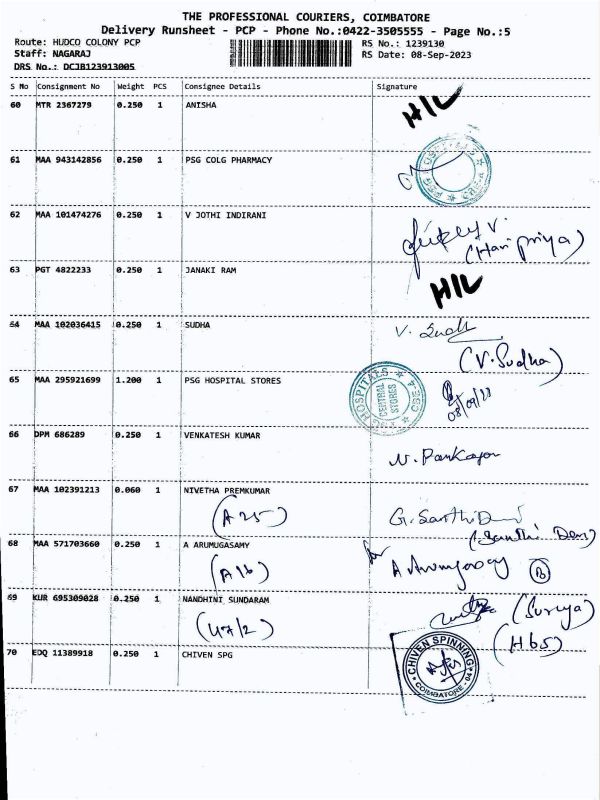 THE PROFESSIONAL COURIERS, COIMBATORE
Delivery Runsheet - PCP - Phone No.:0422-3505555 - Page No.:5
Route: HUDCO COLONY PCP
RS No.: 1239130
Staff: NAGARAJ
RS Date: 08-Sep-2023
DRS No.: DCJB123913005
S No Consignment No Weight PCS Consignee Details Signature
60 MTR 2367279 0.250 1 ANISHA
H/L
61 MAA 943142856 0.250 1 PSG COLG PHARMACY
62 MAA 101474276 0.250 1 V JOTHI INDIRANI
(Haripriya)
63 PGT 4822233 0.250 1 JANAKI RAM
H/L
64 MAA 102036415 0.250 1 SUDHA
V. Sudh
(V.Sudha)
65 MAA 295921699 1.200 1 PSG HOSPITAL STORES
HOSPITALS
CENTRAL STORES
CBE-4
08/09/23
66 DPM 686289 0.250 1 VENKATESH KUMAR
N. Pankajam
67 MAA 102391213 0.060 1 NIVETHA PREMKUMAR
(A25)
G. Santhi Devi
(Santhi Devi)
68 MAA 571703660 0.250 1 A ARUMUGASAMY
(A16)
for A Arumugasamy
69 KUR 695309028 0.250 1 NANDHINI SUNDARAM
(47/2)
(Suriya)
(H65)
70 EDQ 11389918 0.250 1 CHIVEN SPG
CHIVEN SPINNING
COIMBATORE - 04